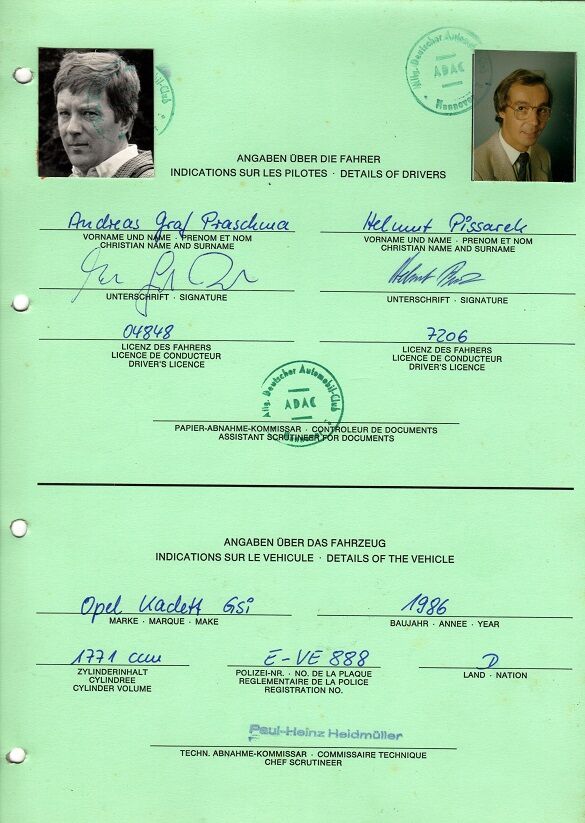 Allg. Deutscher Automobil-Club
ADAC
Hannover
ANGABEN ÜBER DIE FAHRER
INDICATIONS SUR LES PILOTES · DETAILS OF DRIVERS
Andreas Graf Praschma
Helmut Pissarek
VORNAME UND NAME · PRENOM ET NOM
CHRISTIAN NAME AND SURNAME
VORNAME UND NAME · PRENOM ET NOM
CHRISTIAN NAME AND SURNAME
UNTERSCHRIFT · SIGNATURE
UNTERSCHRIFT · SIGNATURE
04848
7206
LICENZ DES FAHRERS
LICENCE DE CONDUCTEUR
DRIVER'S LICENCE
LICENZ DES FAHRERS
LICENCE DE CONDUCTEUR
DRIVER'S LICENCE
Allg. Deutscher Automobil-Club
ADAC
Hannover
PAPIER-ABNAHME-KOMMISSAR · CONTROLEUR DE DOCUMENTS
ASSISTANT SCRUTINEER FOR DOCUMENTS
ANGABEN ÜBER DAS FAHRZEUG
INDICATIONS SUR LE VEHICULE · DETAILS OF THE VEHICLE
Opel Kadett GSi
1986
MARKE · MARQUE · MAKE
BAUJAHR · ANNEE · YEAR
1771 ccm
E-VE 888
D
ZYLINDERINHALT
CYLINDREE
CYLINDER VOLUME
POLIZEI-NR. · NO. DE LA PLAQUE
REGLEMENTAIRE DE LA POLICE
REGISTRATION NO.
LAND · NATION
Paul-Heinz Heidmüller
TECHN. ABNAHME-KOMMISSAR · COMMISSAIRE TECHNIQUE
CHEF SCRUTINEER